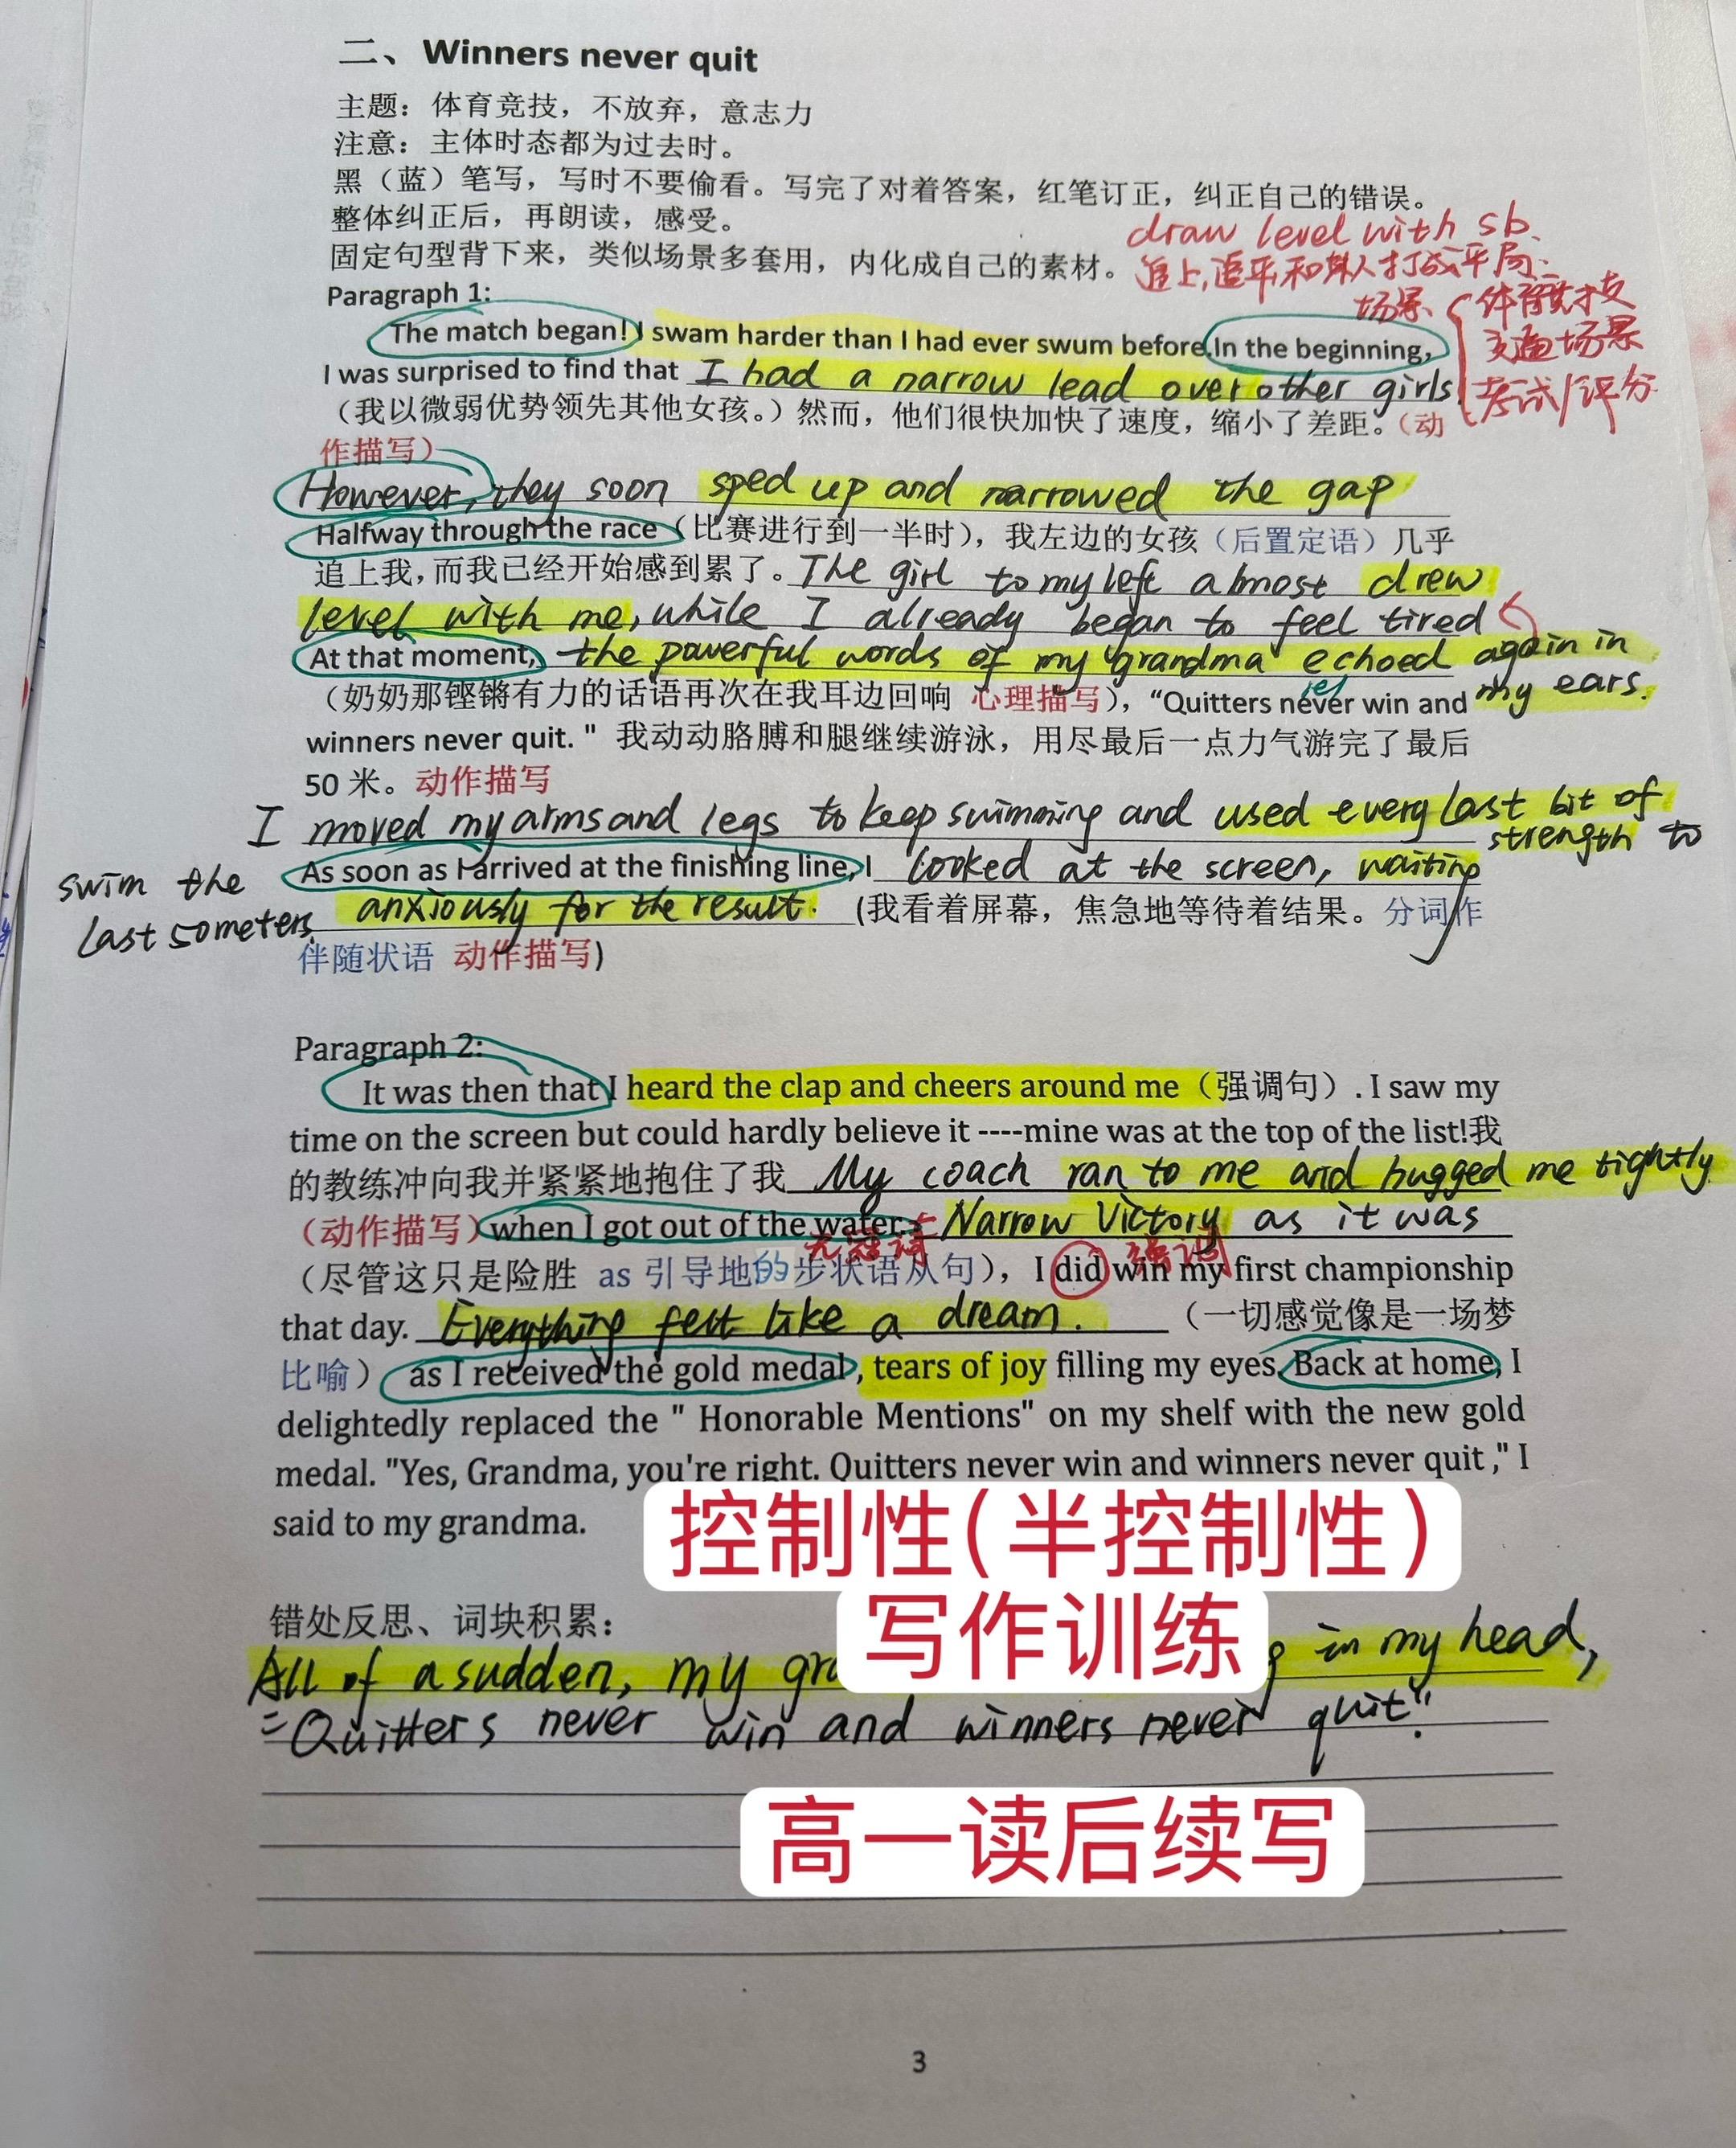 二、Winners never quit
主题：体育竞技，不放弃，意志力
注意：主体时态都为过去时。
黑（蓝）笔写，写时不要偷看。写完了对着答案，红笔订正，纠正自己的错误。
整体纠正后，再朗读，感受。
draw level with sb.
固定句型背下来，类似场景多套用，内化成自己的素材。
追上,追平,和某人打成平局.
Paragraph 1:
场景
体育竞技
交通场景
考试/评分
The match began! I swam harder than I had ever swum before.In the beginning,
I was surprised to find that I had a narrow lead over other girls.
（我以微弱优势领先其他女孩。）然而，他们很快加快了速度，缩小了差距。（动
作描写）
However, they soon sped up and narrowed the gap
Halfway through the race（比赛进行到一半时），我左边的女孩（后置定语）几乎
追上我，而我已经开始感到累了。The girl to my left almost drew
level with me, while I already began to feel tired
At that moment, the powerful words of my grandma echoed again in
my ears.
（奶奶那铿锵有力的话语再次在我耳边回响 心理描写），“Quitters never win and
winners never quit. " 我动动胳膊和腿继续游泳，用尽最后一点力气游完了最后
50 米。动作描写
I moved my arms and legs to keep swimming and used every last bit of
strength to
swim the
last 50 meters.
As soon as I arrived at the finishing line, I looked at the screen, waiting
anxiously for the result. (我看着屏幕，焦急地等待着结果。分词作
伴随状语 动作描写)
Paragraph 2:
It was then that I heard the clap and cheers around me（强调句）. I saw my
time on the screen but could hardly believe it ----mine was at the top of the list!我
的教练冲向我并紧紧地抱住了我 My coach ran to me and hugged me tightly
（动作描写）when I got out of the water. Narrow Victory as it was
无冠词
强调
（尽管这只是险胜 as 引导地的步状语从句），I did win my first championship
that day. Everything felt like a dream. （一切感觉像是一场梦
比喻）as I received the gold medal, tears of joy filling my eyes. Back at home, I
delightedly replaced the " Honorable Mentions" on my shelf with the new gold
medal. "Yes, Grandma, you're right. Quitters never win and winners never quit ," I
said to my grandma.
控制性（半控制性）
写作训练
错处反思、词块积累：
All of a sudden, my in my head,
"Quitters never win and winners never quit".
高一读后续写
3